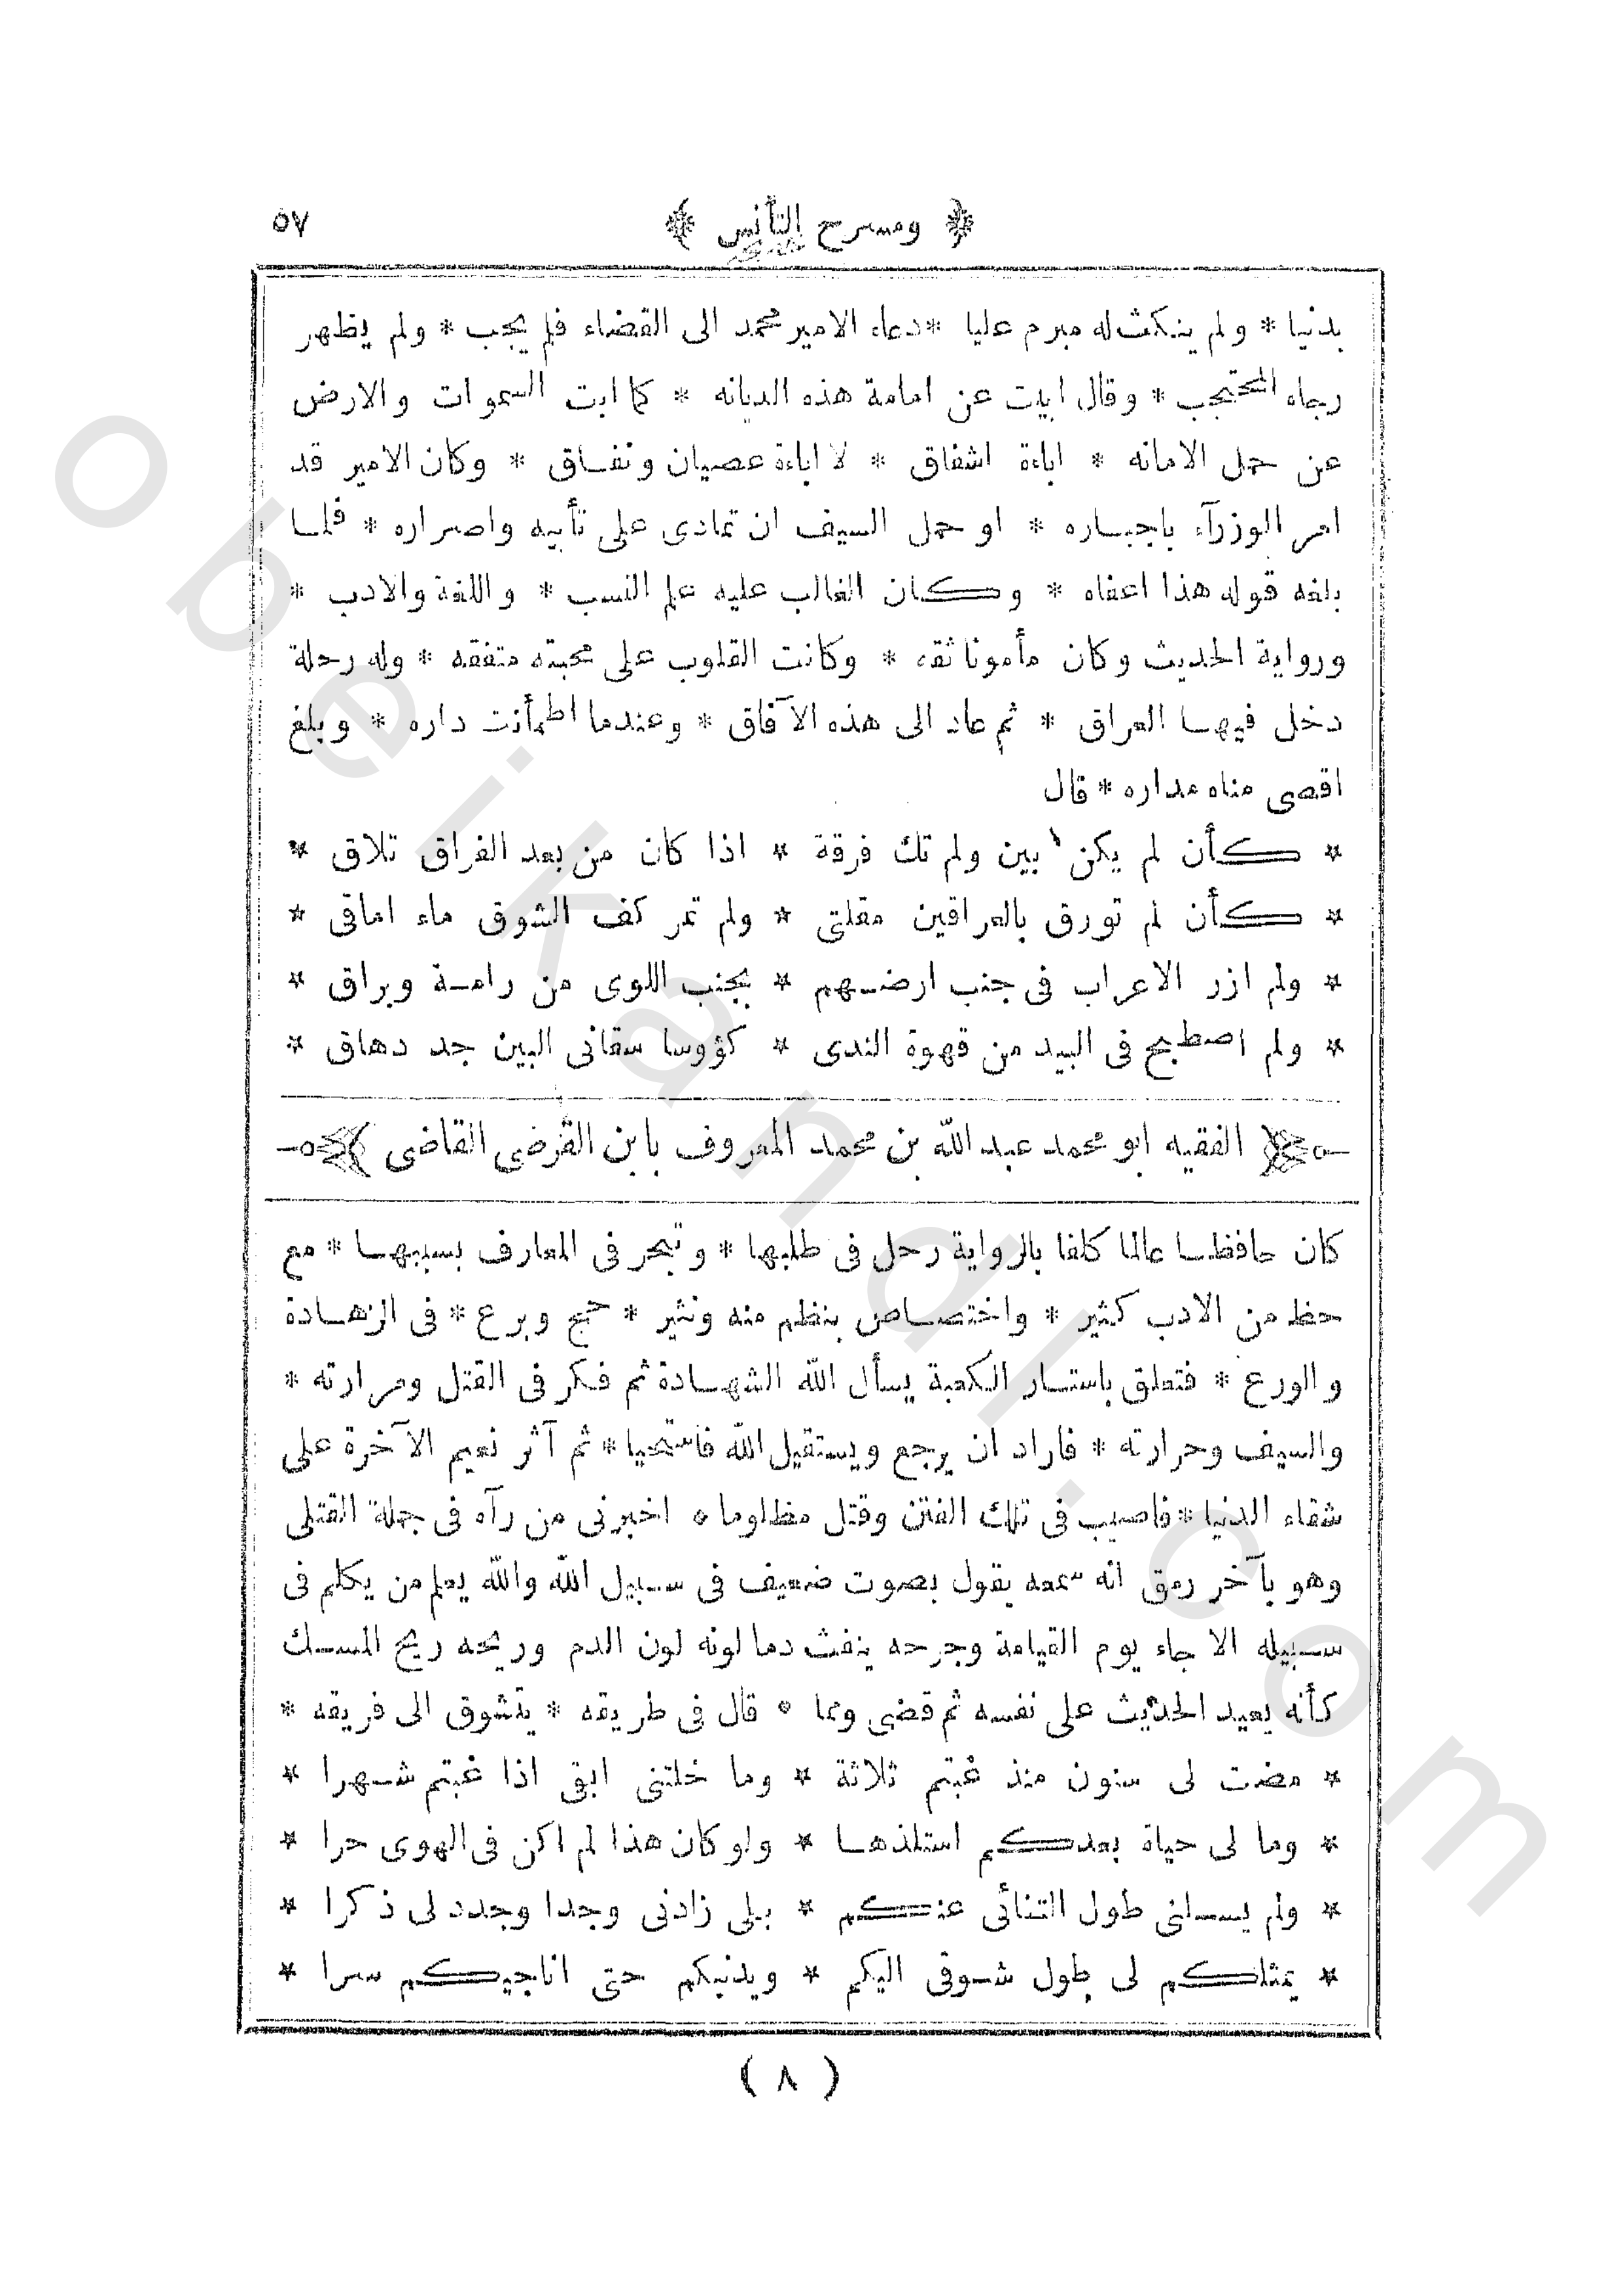 ﴿ ومسرح التأنس ﴾ ٥٧
بدنيا * ولم ينكث له مبرم عليا * دعاه الامير محمد الى القضاء فلم يجب * ولم يظهر
رجاه المحتجب * وقال ابيت عن امامة هذه الديانه * كما ابت السموات والارض
عن حمل الامانه * اباءة اشفاق * لا اباءة عصيان ونفاق * وكان الامير قد
امر الوزرآء باجباره * او حمل السيف ان تمادى على تأبيه واصراره * فلما
بلغه قوله هذا اعفاه * وكان الغالب عليه علم النسب * واللغة والادب *
ورواية الحديث وكان مأمونا ثقه * وكانت القلوب على محبته متفقه * وله رحلة
دخل فيها العراق * ثم عاد الى هذه الآفاق * وعندما اطمأنت داره * وبلغ
اقصى مناه مداره * قال
* كأن لم يكن بين ولم تك فرقة * اذا كان من بعد الفراق تلاق *
* كأن لم تورق بالعراقين مقلتى * ولم تمر كف الشوق ماء اماقى *
* ولم ازر الاعراب فى جنب ارضهم * بجنب اللوى من رامة وبراق *
* ولم اصطبح فى البيد من قهوة الندى * كؤوسا سقانى البين جد دهاق *
الفقيه ابو محمد عبد الله بن محمد المعروف بابن الفرضى القاضى
كان حافظا عالما كلفا بالرواية رحل فى طلبها * وتبحر فى المعارف بسببها * مع
حظ من الادب كثير * واختصاص بنظم منه ونثير * حج وبرع * فى الزهادة
والورع * فتعلق باستار الكعبة يسأل الله الشهادة ثم فكر فى القتل ومرارته *
والسيف وحرارته * فاراد ان يرجع ويستقيل الله فاستحيا * ثم آثر نعيم الآخرة على
شقاء الدنيا * فاصيب فى تلك الفتن وقتل مظلوما * اخبرنى من رآه فى جملة القتلى
وهو بآخر رمق انه سمعه يقول بصوت ضعيف فى سبيل الله والله يعلم من يكلم فى
سبيله الا جاء يوم القيامة وجرحه ينفث دما لونه لون الدم وريحه ريح المسك
كأنه يعيد الحديث على نفسه ثم قضى ومما * قال فى طريقه * يتشوق الى فريقه *
* مضت لى سنون منذ غبتم ثلاثة * وما خلتنى ابقى اذا غبتم شهرا *
* وما لى حياة بعدكم استلذها * ولو كان هذا لم اكن فى الهوى حرا *
* ولم يسلنى طول التنائى عنكم * بلى زادنى وجدا وجدد لى ذكرا *
* يمثلكم لى طول شوقى اليكم * ويدنيكم حتى اناجيكم سرا *
( ٨ )
opeikandl.com